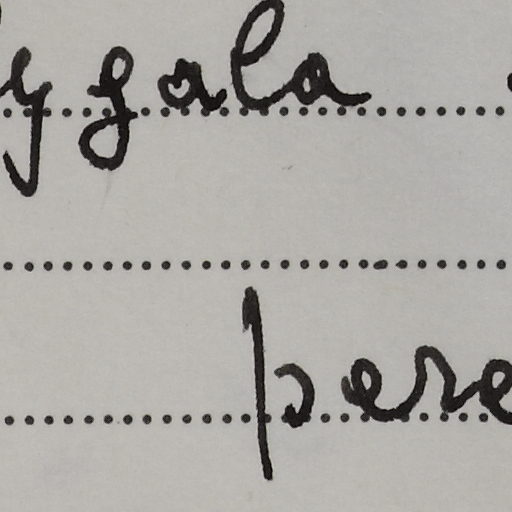 ygala
pere